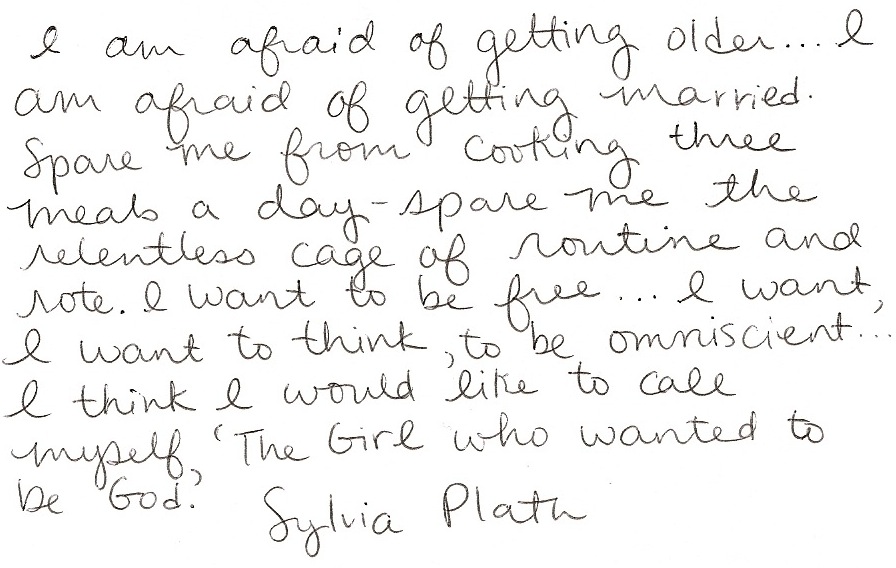 I am afraid of getting older... I
am afraid of getting married.
Spare me from cooking three
meals a day-spare me the
relentless cage of routine and
rote. I want to be free... I want,
I want to think, to be omniscient...
I think I would like to call
myself, 'The Girl who wanted to
be God.'
Sylvia Plath